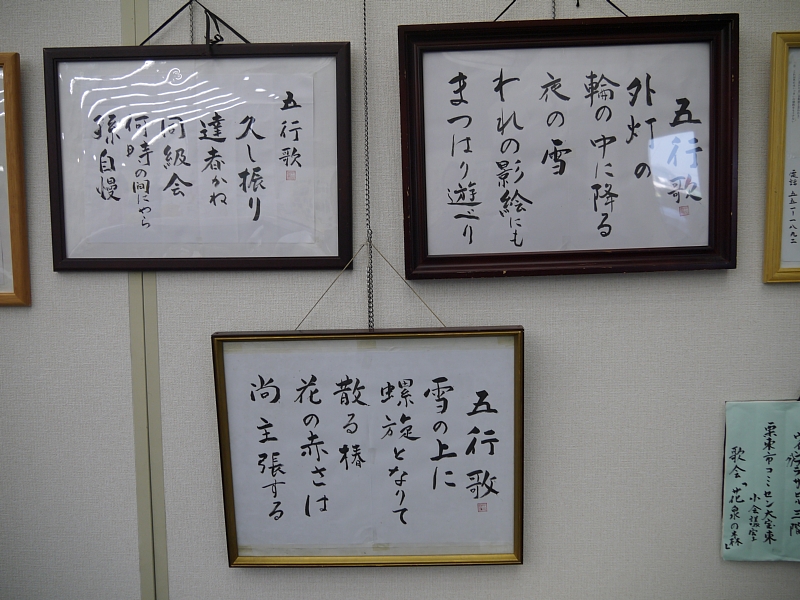 五行歌
久し振り
達者かね
同級会
何時の間にやら
孫自慢
五行歌
外灯の
輪の中に降る
夜の雪
われの影絵にも
まつはり遊べり
五行歌
雪の上に
螺旋となりて
散る椿
花の赤さは
尚主張する
電話 五五一-一八九二
栗東市コミセン大宝東
小会議室
歌会「花泉の森」